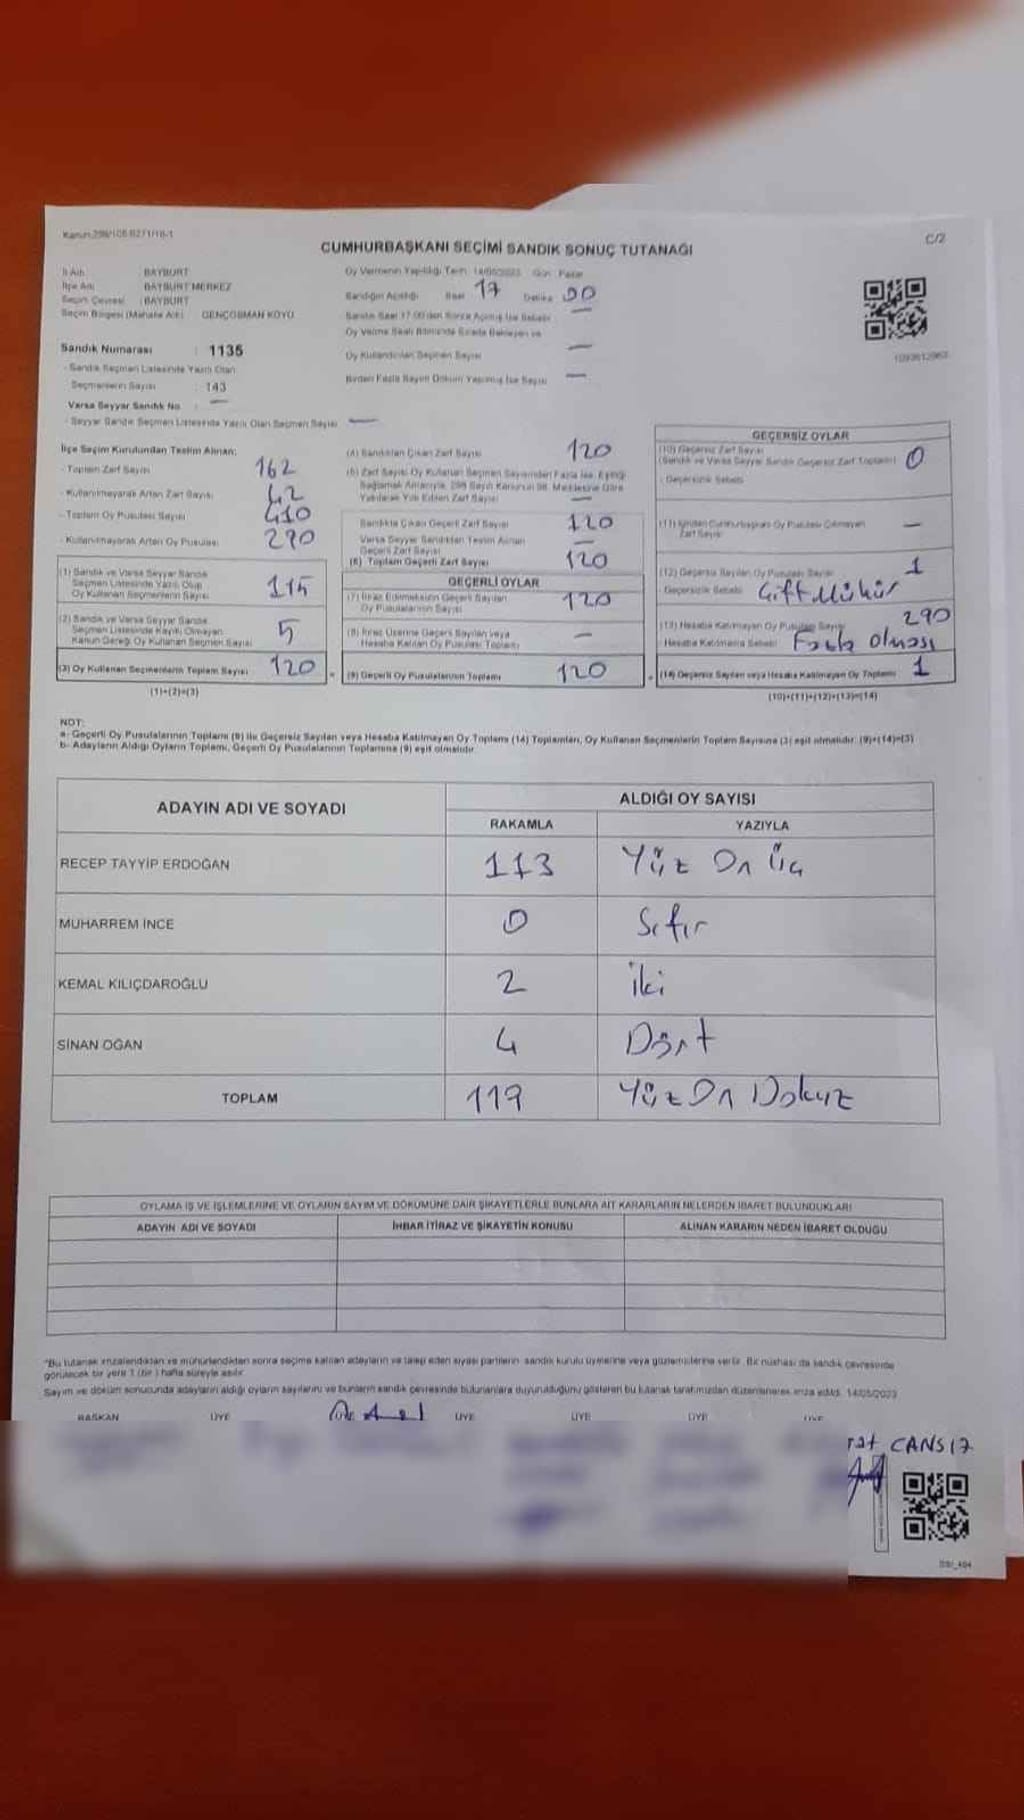 C/2
CUMHURBAŞKANI SEÇİMİ SANDIK SONUÇ TUTANAĞI
İl Adı : BAYBURT
İlçe Adı : BAYBURT MERKEZ
Seçim Çevresi : BAYBURT
Seçim Bölgesi (Mahalle Adı) : GENÇOSMAN KÖYÜ
Oy Vermenin Yapıldığı Tarih : 14/05/2023 Gün : Pazar
Sandığın Açıldığı Saat 17 Dakika 00
Sandık Saat 17.00'den Sonra Açılmış İse Sebebi —
Oy Verme Saati Bitiminde Sırada Bekleyen ve
Oy Kullandırılan Seçmen Sayısı —
Birden Fazla Sayım Döküm Yapılmış İse Sayısı —
Sandık Numarası : 1135
- Sandık Seçmen Listesinde Yazılı Olan
Seçmenlerin Sayısı : 143
Varsa Seyyar Sandık No : —
- Seyyar Sandık Seçmen Listesinde Yazılı Olan Seçmen Sayısı —
İlçe Seçim Kurulundan Teslim Alınan;
- Toplam Zarf Sayısı 162
- Kullanılmayarak Artan Zarf Sayısı 42
- Toplam Oy Pusulası Sayısı 410
- Kullanılmayarak Artan Oy Pusulası 290
(1) Sandık ve Varsa Seyyar Sandık
Seçmen Listesinde Yazılı Olup
Oy Kullanan Seçmenlerin Sayısı 115
(2) Sandık ve Varsa Seyyar Sandık
Seçmen Listesinde Kayıtlı Olmayan
Kanun Gereği Oy Kullanan Seçmen Sayısı 5
(3) Oy Kullanan Seçmenlerin Toplam Sayısı 120
(1)+(2)=(3)
(4) Sandıktan Çıkan Zarf Sayısı 120
(5) Zarf Sayısı Oy Kullanan Seçmen Sayısından Fazla İse, Eşitliği
Sağlamak Amacıyla, 298 Sayılı Kanunun 98. Maddesine Göre
Yakılarak Yok Edilen Zarf Sayısı —
Sandıkta Çıkan Geçerli Zarf Sayısı 120
Varsa Seyyar Sandıktan Teslim Alınan
Geçerli Zarf Sayısı —
(6) Toplam Geçerli Zarf Sayısı 120
GEÇERLİ OYLAR
(7) İtiraz Edilmeksizin Geçerli Sayılan
Oy Pusulalarının Sayısı 120
(8) İtiraz Üzerine Geçerli Sayılan veya
Hesaba Katılan Oy Pusulası Toplamı —
(9) Geçerli Oy Pusulalarının Toplamı 120
GEÇERSİZ OYLAR
(10) Geçersiz Zarf Sayısı
(Sandık ve Varsa Seyyar Sandık Geçersiz Zarf Toplamı) 0
- Geçersizlik Sebebi
(11) İçinden Cumhurbaşkanı Oy Pusulası Çıkmayan
Zarf Sayısı —
(12) Geçersiz Sayılan Oy Pusulası Sayısı 1
Geçersizlik Sebebi Çift Mühür
(13) Hesaba Katılmayan Oy Pusulası Sayısı 290
Hesaba Katılmama Sebebi Fazla olması
(14) Geçersiz Sayılan veya Hesaba Katılmayan Oy Toplamı 1
(10)+(11)+(12)+(13)=(14)
NOT:
a- Geçerli Oy Pusulalarının Toplamı (9) ile Geçersiz Sayılan veya Hesaba Katılmayan Oy Toplamı (14) Toplamları, Oy Kullanan Seçmenlerin Toplam Sayısına (3) eşit olmalıdır. (9)+(14)=(3)
b- Adayların Aldığı Oyların Toplamı, Geçerli Oy Pusulalarının Toplamına (9) eşit olmalıdır.
ADAYIN ADI VE SOYADI ALDIĞI OY SAYISI
RAKAMLA YAZIYLA
RECEP TAYYİP ERDOĞAN 113 Yüz On Üç
MUHARREM İNCE 0 Sıfır
KEMAL KILIÇDAROĞLU 2 İki
SİNAN OĞAN 4 Dört
TOPLAM 119 Yüz On Dokuz
OYLAMA İŞ VE İŞLEMLERİNE VE OYLARIN SAYIM VE DÖKÜMÜNE DAİR ŞİKAYETLERLE BUNLARA AİT KARARLARIN NELERDEN İBARET BULUNDUKLARI
ADAYIN ADI VE SOYADI İHBAR İTİRAZ VE ŞİKAYETİN KONUSU ALINAN KARARIN NEDEN İBARET OLDUĞU
*Bu tutanak imzalandıktan ve mühürlendikten sonra seçime katılan adayların ve talep eden siyasi partilerin sandık kurulu üyelerine veya gözlemcilerine verilir. Bir nüshası da sandık çevresinde
görülecek bir yere 1 (bir) hafta süreyle asılır.
Sayım ve döküm sonucunda adayların aldığı oyların sayılarını ve bunların sandık çevresinde bulunanlara duyurulduğunu gösteren bu tutanak tarafımızdan düzenlenerek imza edildi. 14/05/2023
BAŞKAN ÜYE ÜYE ÜYE ÜYE ÜYE
CANSIZ